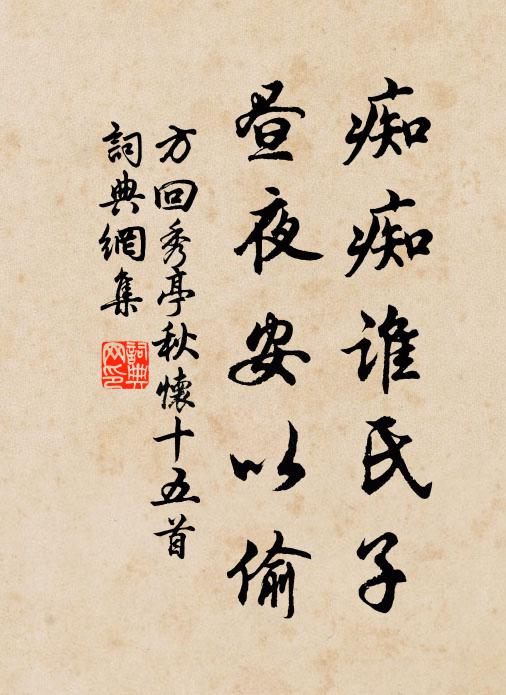 痴痴谁氏子
昼夜安以偷
方回秀亭秋懷十五首
詞典網集
詞典网印